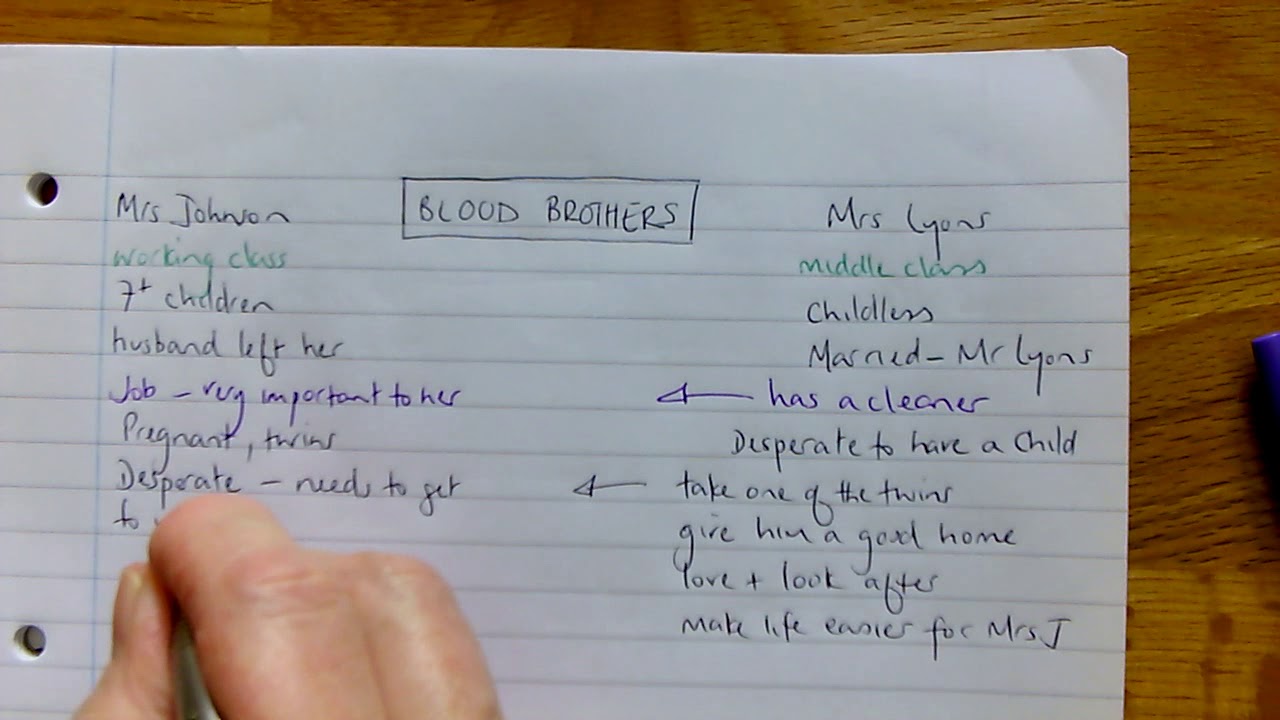 BLOOD BROTHERS
Mrs Johnson
working class
7+ children
husband left her
Job - very important to her
Pregnant, twins
Desperate - needs to get
to
Mrs Lyons
middle class
Childless
Married - Mr Lyons
← has a cleaner
Desperate to have a child
← take one of the twins
give him a good home
love + look after
make life easier for Mrs J